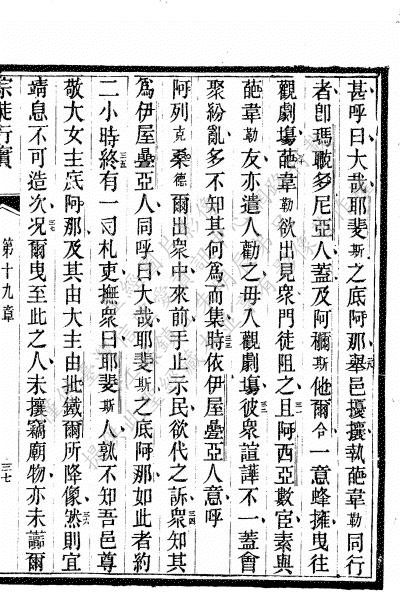 甚呼曰大哉耶斐斯之底阿那舉邑擾攘執葩韋勒同行
者卽瑪畷多尼亞人葢及阿彌斯他爾合一意蜂擁曳往
觀劇塲葩韋勒欲出見衆門徒阻之且阿西亞數宦素與
葩韋勒友亦遣人勸之毋入觀劇塲彼衆諠譁不一葢會
聚紛亂多不知其何爲而集時依伊屋疊亞人意呼
阿列克桑德爾出衆中來前手止示民欲代之訴衆知其
爲伊屋疊亞人同呼曰大哉耶斐斯之底阿那如此者約
二小時終有一司札吏撫衆曰耶斐斯人孰不知吾邑尊
敬大女主底阿那及其由大主由批鐵爾所降像然則宜
靖息不可造次况爾曳至此之人未攘竊廟物亦未讟爾
宗徒行實
第十九章
三七